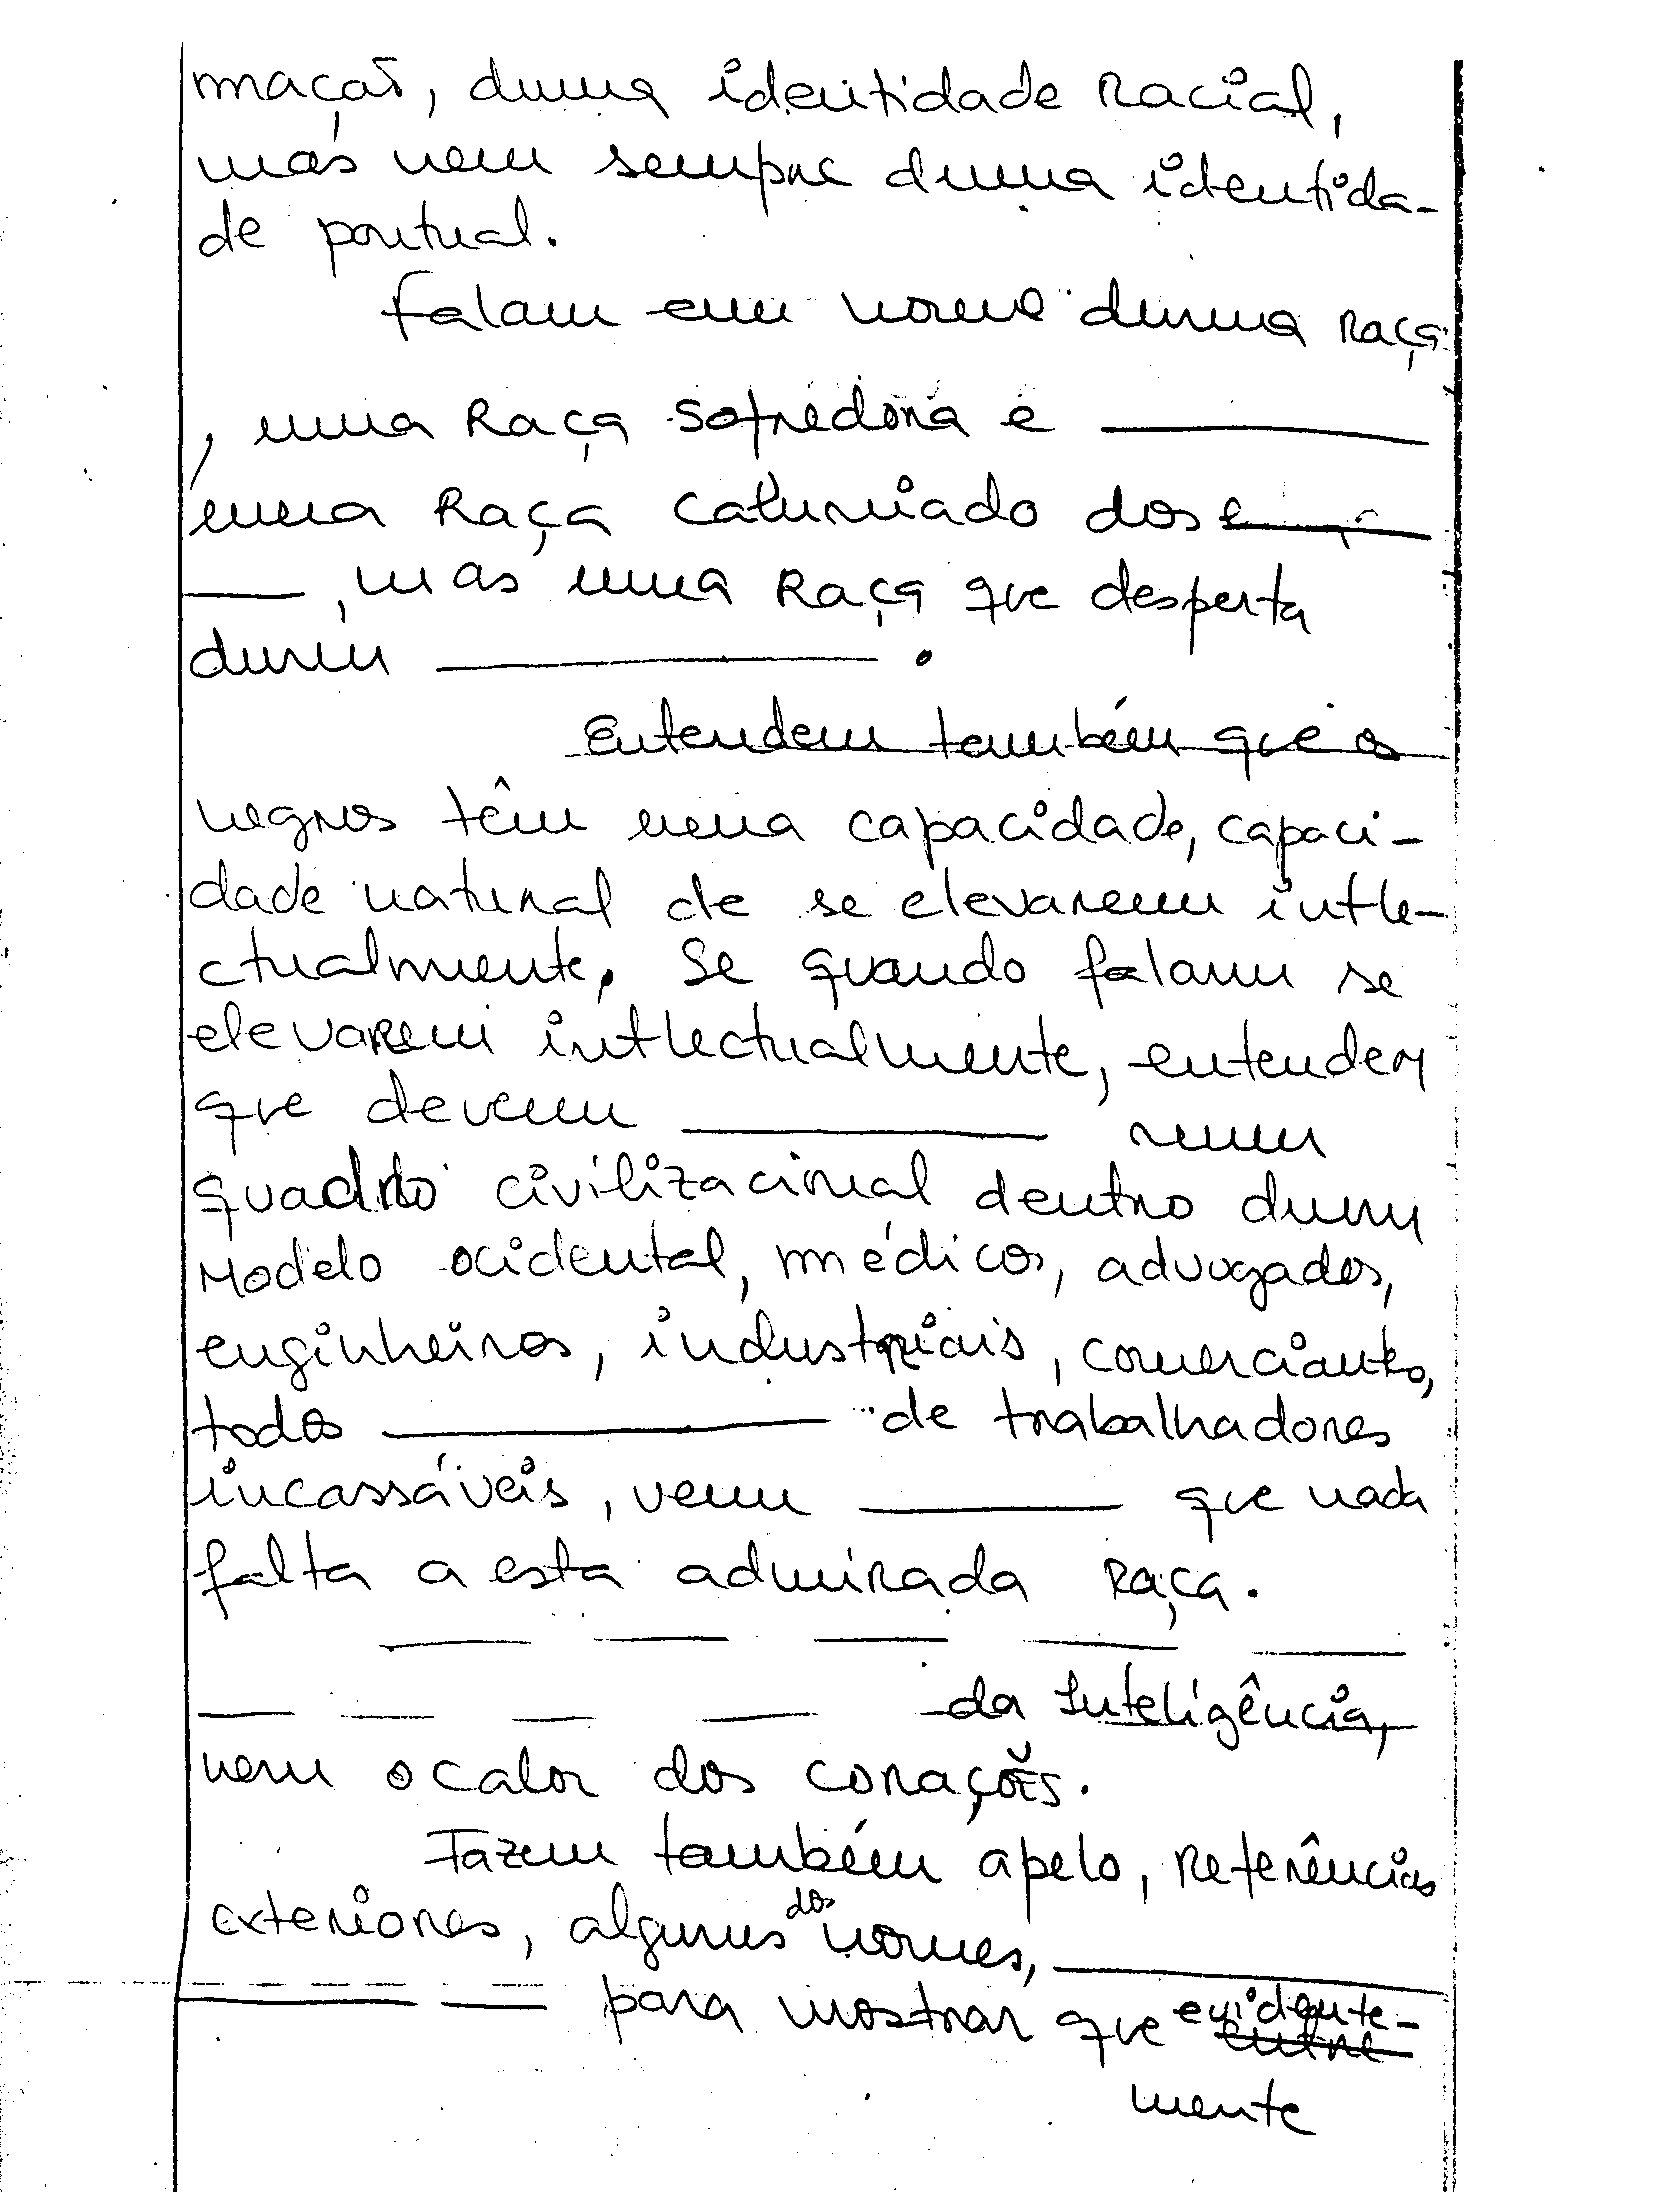 mação, duma identidade racial,
mas nem sempre duma identida-
de pontual.
Falam em nome duma raça
, uma Raça sofredora e ________
uma Raça caluniado dos e____
____, mas uma Raça que desperta
dum ________.
Entendem também que os
negros têm uma capacidade, capaci-
dade natural de se elevarem intle-
ctualmente, Se quando falam se
elevarem intlectualmente, entendem
que devem ________ num
quadro civilizacional dentro dum
Modelo ocidental, médicos, advogados,
enginheiros, industriais, comerciantes,
todos ________ de trabalhadores
incassáveis, vem ________ que nada
falta a esta admirada raça.
__ __ __ __ __
__ __ __ __ da Inteligência,
nem o calor dos corações.
Fazem também apelo, referências
exteriores, alguns dos nomes, ________
________ __ para mostrar que evidente-
entre
mente